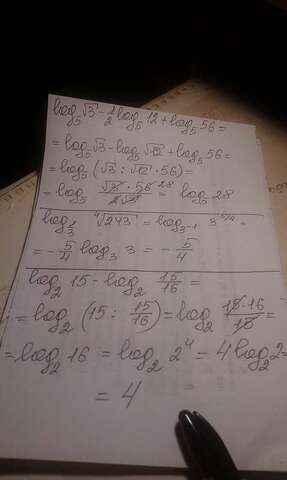 log₅√3 - 1/2 log₅12 + log₅56 =
= log₅√3 - log₅√12 + log₅56 =
= log₅(√3 : √12 · 56) =
= log₅ (√3 · 56 28)/(2√3) = log₅28
log_{1/3} ⁴√243 = log_{3⁻¹} 3^{5/4} =
= -5/4 log₃3 = -5/4
log₂15 - log₂ 15/16 =
= log₂(15 : 15/16) = log₂ (15·16)/15 =
= log₂16 = log₂2⁴ = 4log₂2 =
= 4